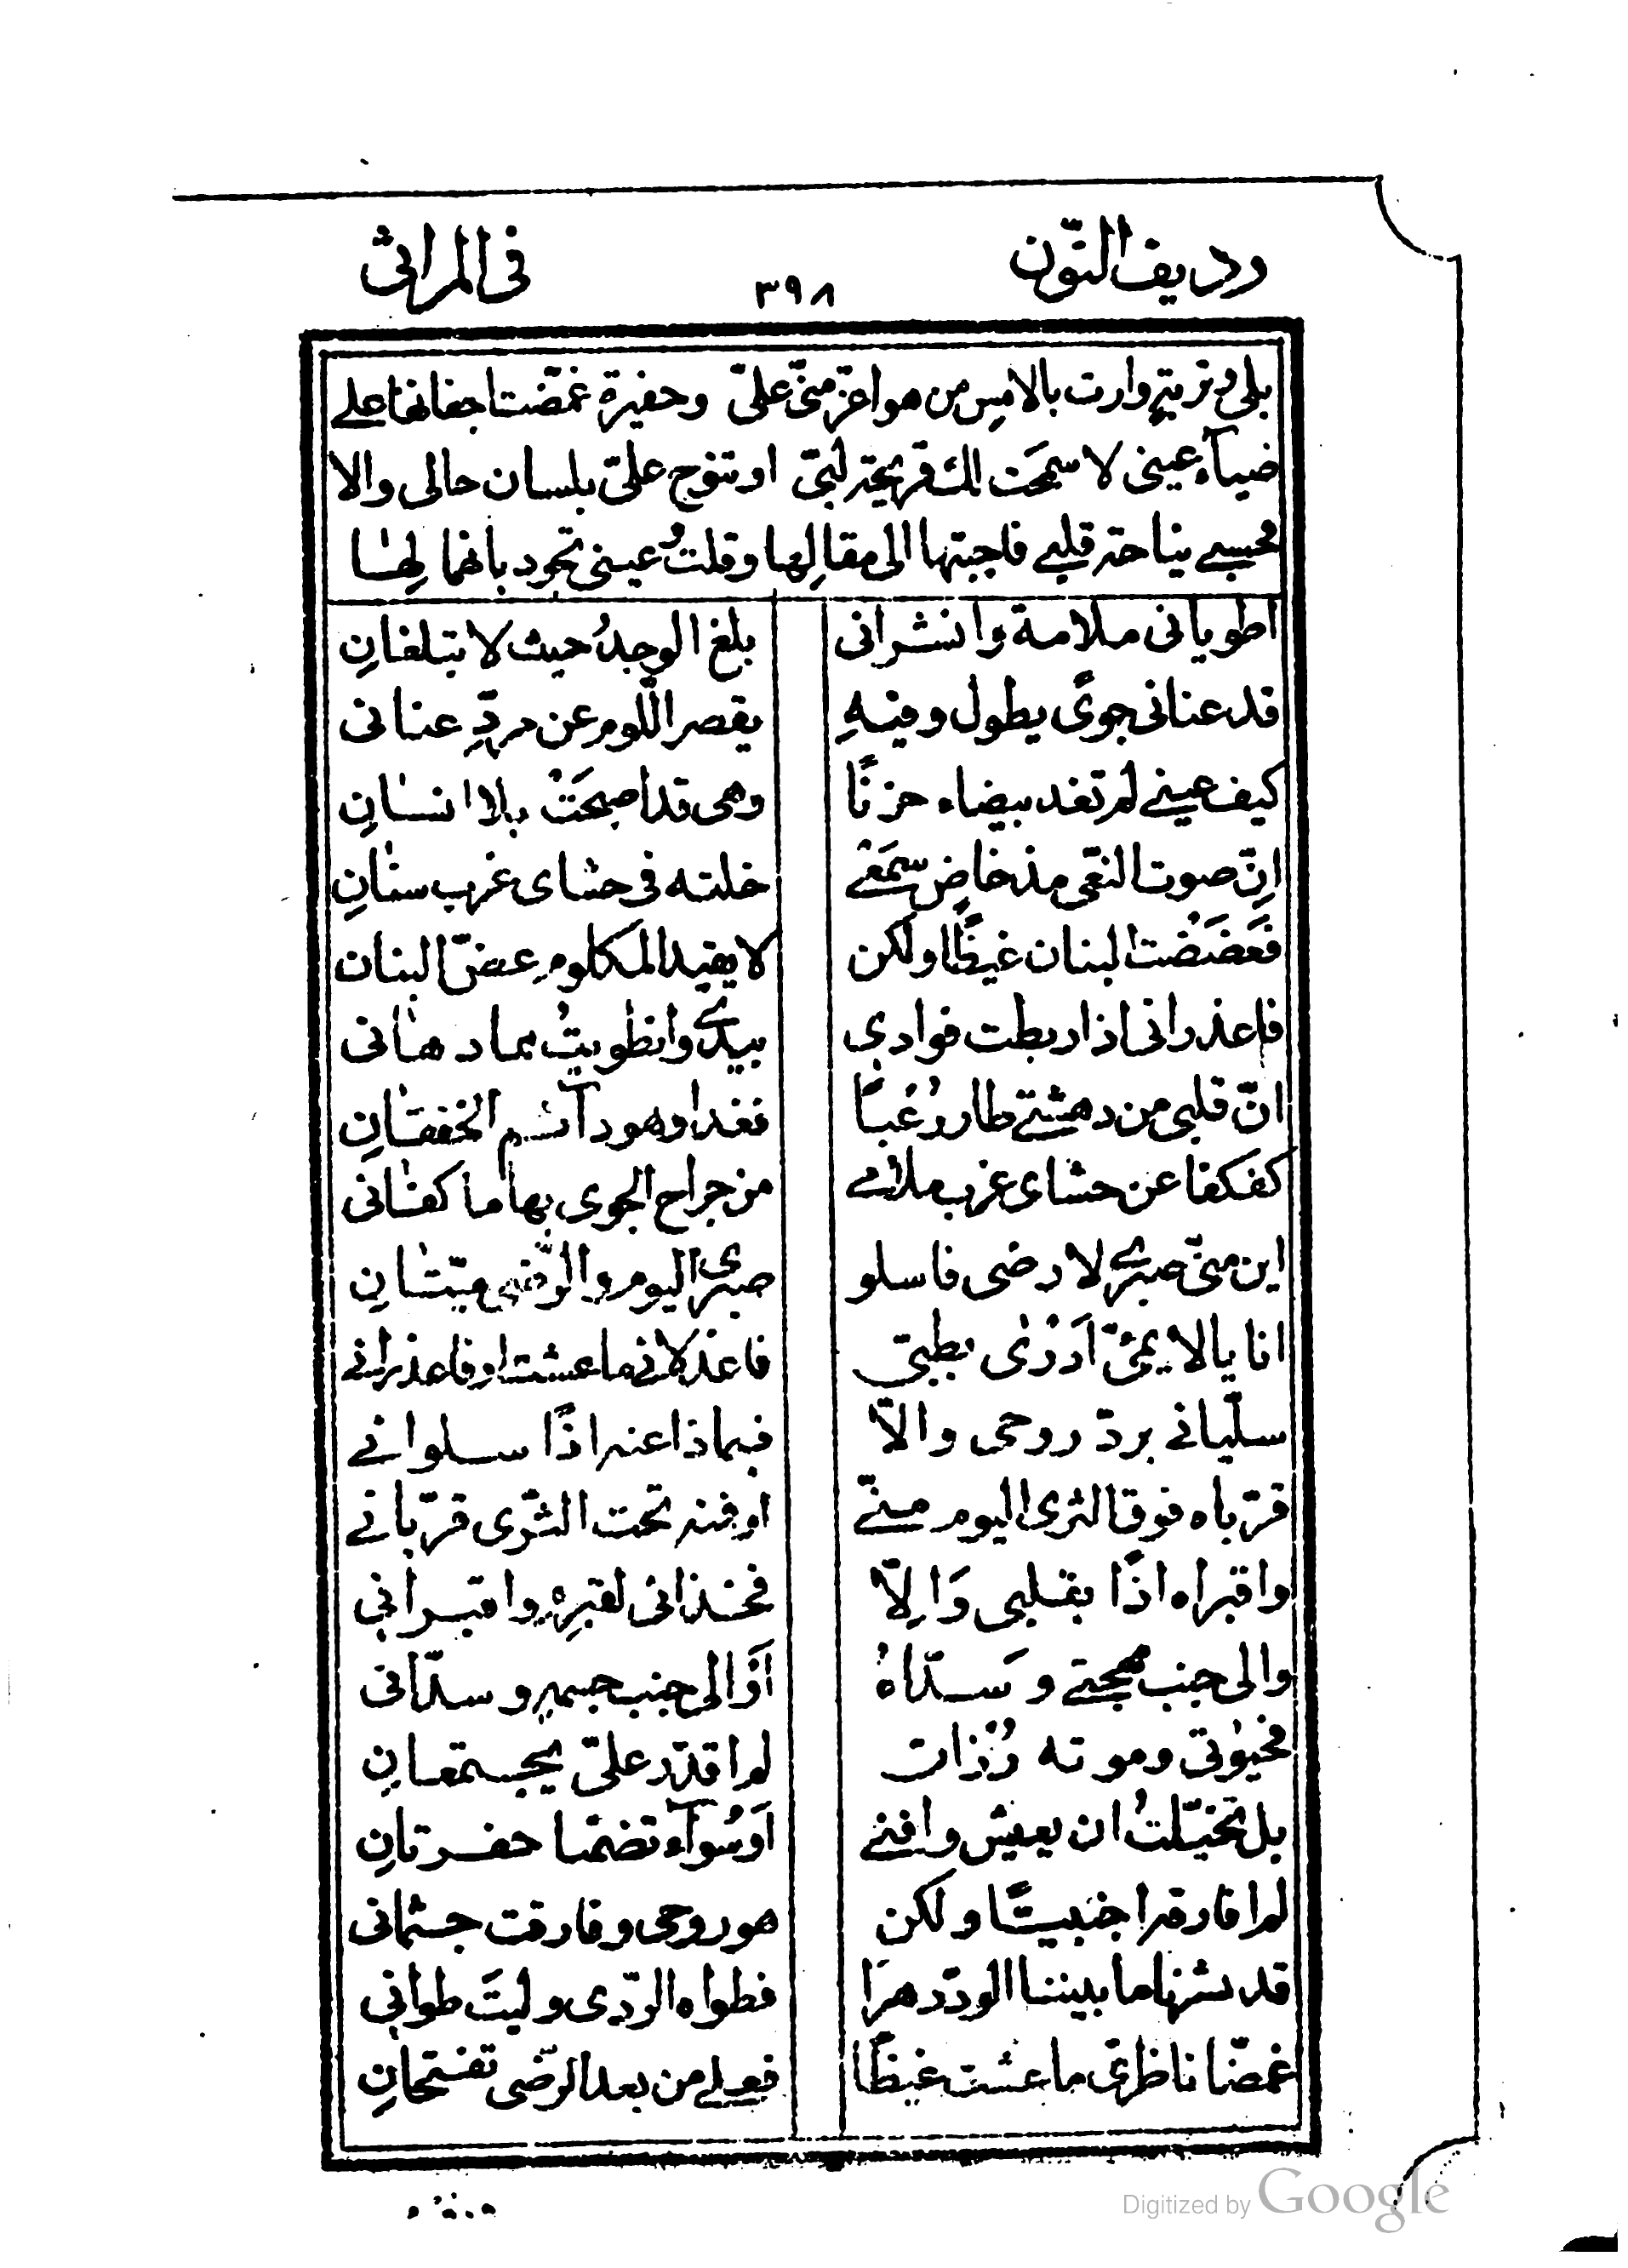 رديف النّون ٣٩٨ في المراثي
بلى وتربته وارت بالامس من هو اعزّ منّى علىّ وحفيرة غمّضت اجفانها على
ضيآء عينى لا سمحت لك قريحته لبّى او تنوح علىّ بلسان حالى والا
محسبى بناحته قلبى فاجبتها الى مقالها وقلتُ عينى تجود بانها لها
اطويانى ملامة وانشرانى بلغ الوجدُ حيث لا تبلغانِ
قد عنانى جوىً يطول وفيهِ يقصر اللّوم عن مردِّ عنانى
كيف عينى لم تغد بيضاء حزنًا وهى قد اصبحَتْ بلا انسانِ
انّ صوت النّعى مذ خاض سَمْعى خلته فى حشاى غرب سنانِ
فَعَضَضْتُ البنان غيظًا ولكن لا يفيد المكلوم عضّ البنان
فاعذرانى اذا ربطت فوادى بيدىّ وانطويتُ بما دهانى
انّ قلبى من دهشتى طار رُعْبًا فغدا وهو دآئم الخفقانِ
كفكفا عن حشاى غرب ملامى من جراح الجوى بها ما كفانى
اين منّى صبرى لارضى فاسلو صبرى اليوم والرّضى ميّتانِ
انا يا لائمىّ اَدْرٰى بطبّى فاعذلانى ما عشت او فاعذرانى
سلّيانى بردّ روحى والاّ فبماذا عنه اذًا سلوانى
قرّباه فوق الثرى اليوم منّى او فمنه تحت الثّرى قرّبانى
واقبراه اذًا بقلبى وَاِلاّ فخذانى لقبرِه واقبرانى
والى جنب مهجتى وسّداهُ اوْ الى جنب جسمه وسدّانى
فحيوتى وموته رُزْات لم اقدّر علىّ يجتمعانِ
بل تخيّلتُ ان يعيش وافنى اوْ سُوآء تضمّنا حفرتانِ
لم افارقه اجنبيًّا ولكن هو روحى وفارقت جثمانى
قد نشرنا ما بيننا الودّ دهرًا فطواه الرّدى وليتَ طوانى
غمّضا ناظرىّ ما عشت غيظًا فعلى من بعد الرّضى تفتحانِ
Digitized by Google